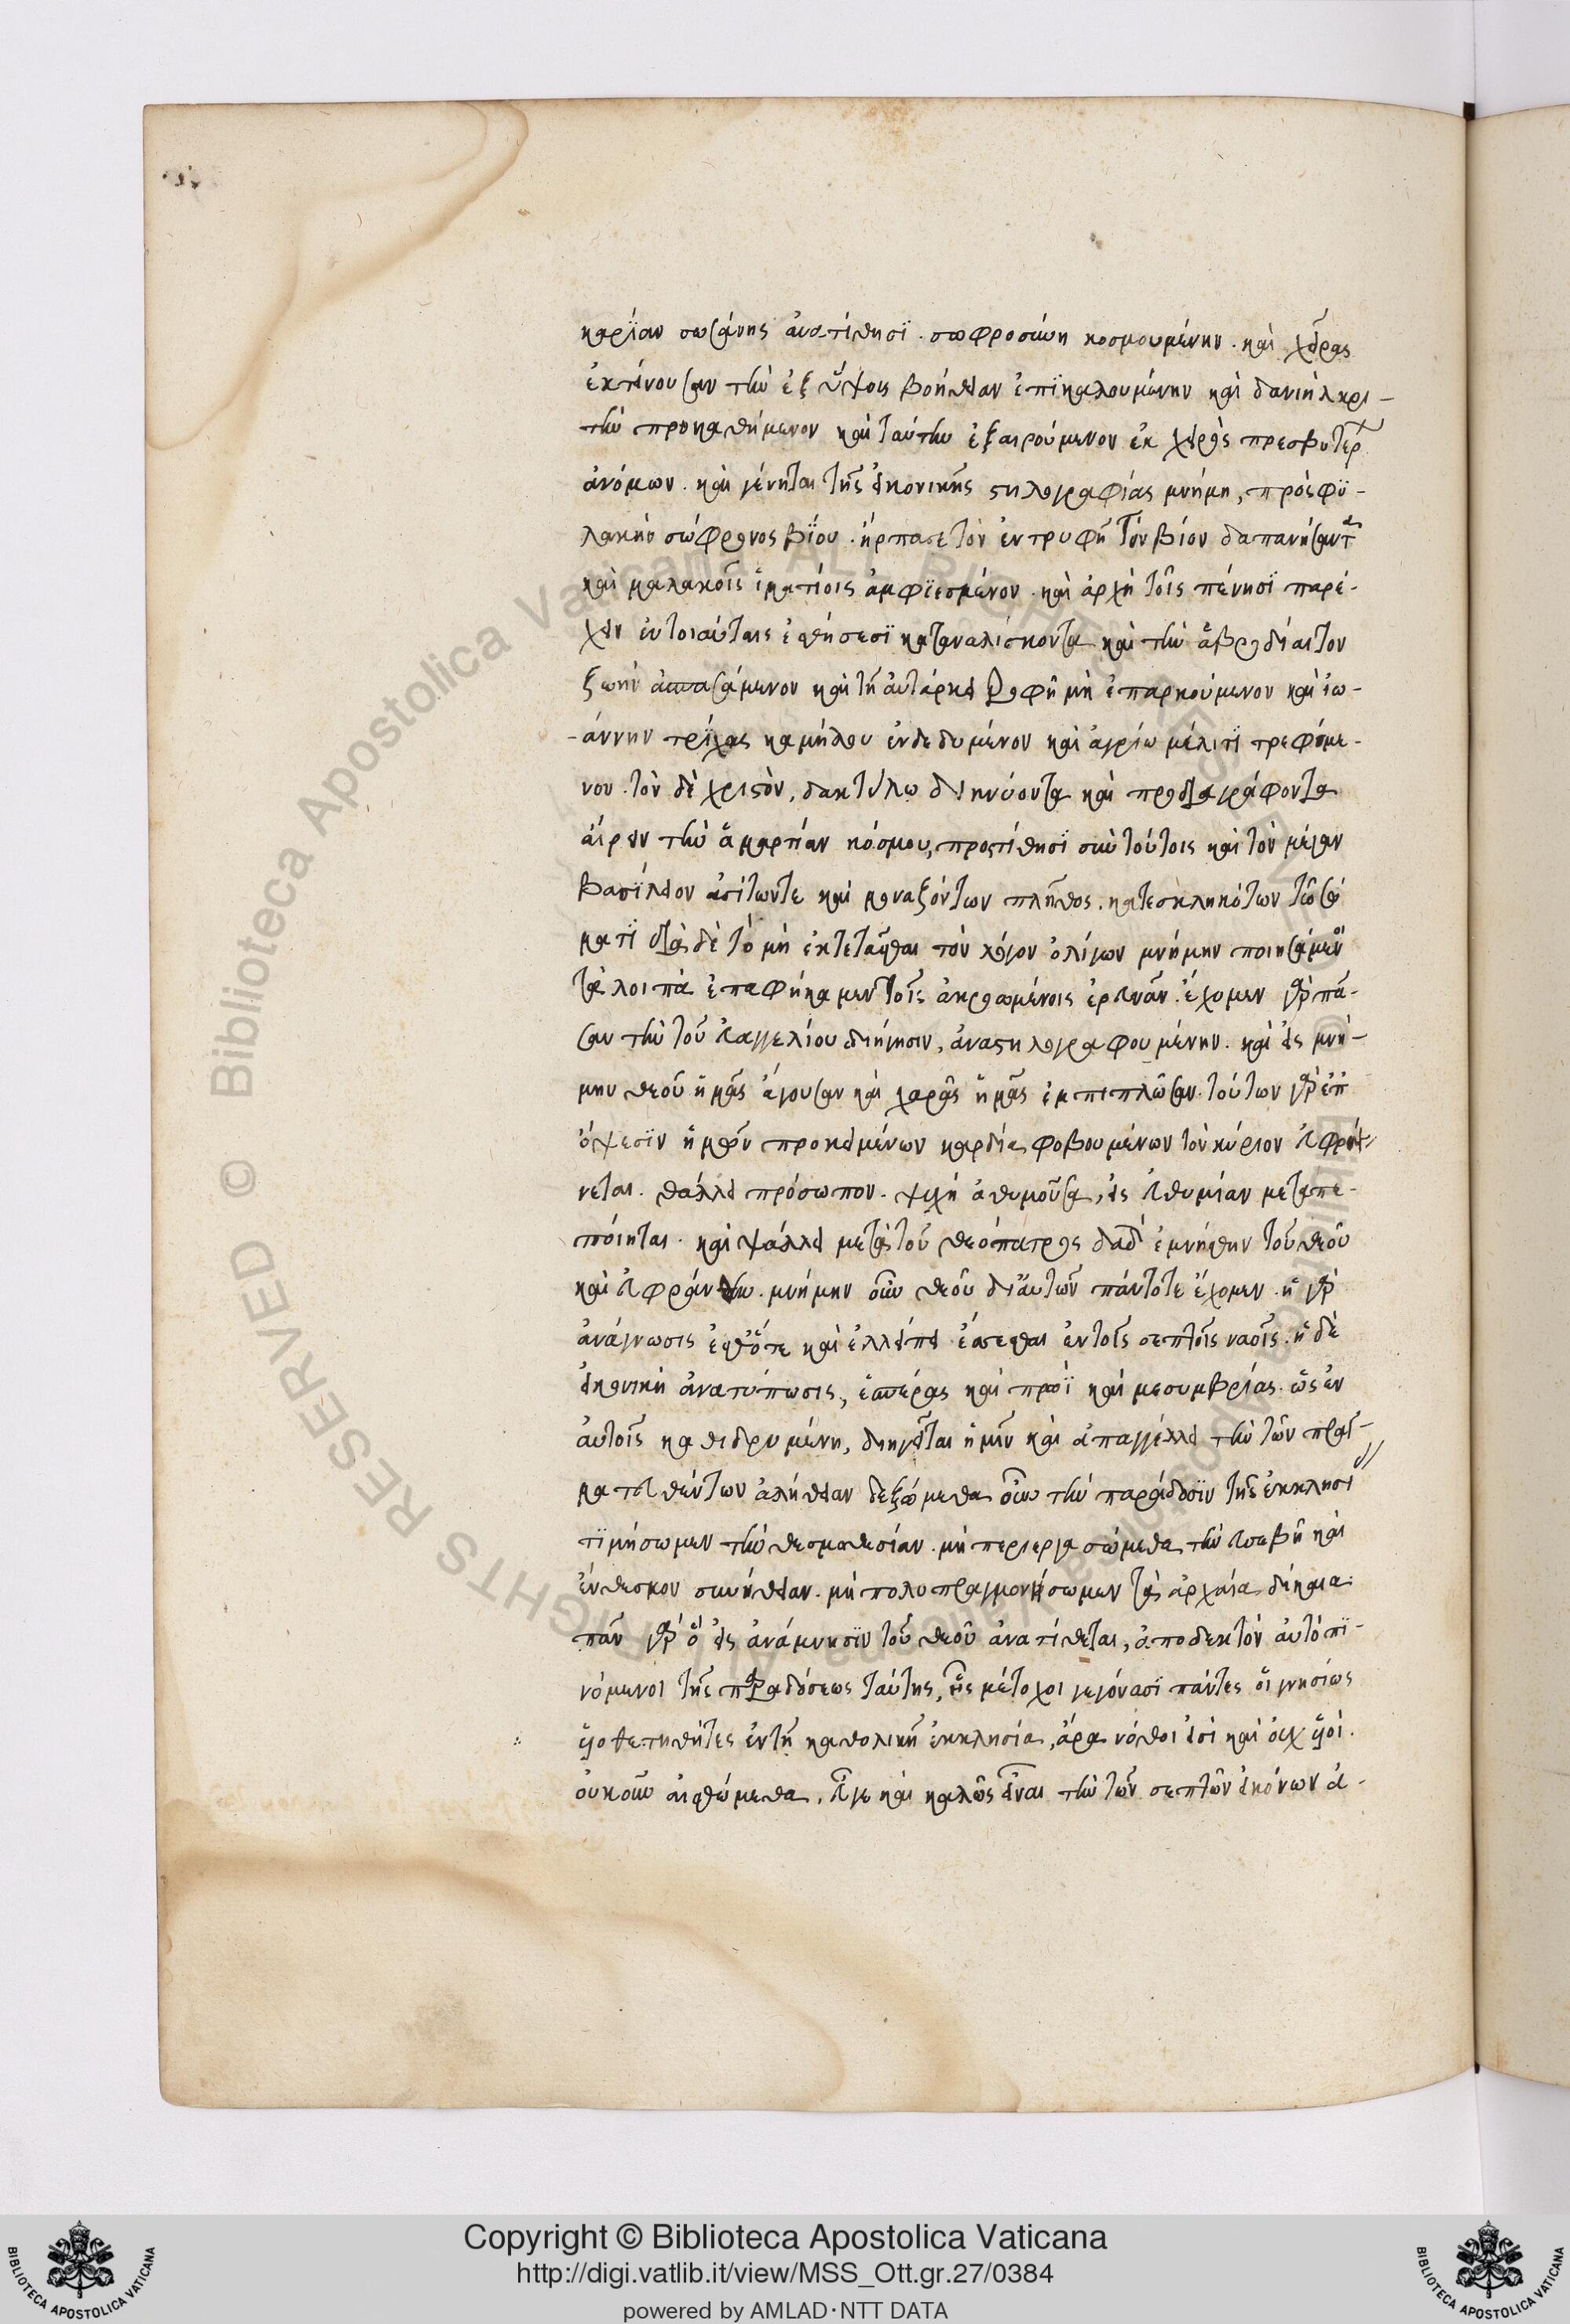 καρίαν σωσάνης ἀνατίθησϊ. σωφροσύνη κοσμουμένην. καὶ χεῖρας
ἐκτείνουσαν τὴν ἐξ ὕψους βοήθειαν ἐπϊκαλουμένην καὶ δανιὴλ κρι-
τὴν προκαθήμενον καὶ ταύτην ἐξαιρούμενον ἐκ χειρὸς πρεσβυτέρ
ἀνόμων. καὶ γένηται τῆς εἰκονικῆς στηλογραφίας μνήμη, πρὸς φϋ-
λακὴν σώφρονος βΐου. ἥρπασε τὸν ἐν τρυφῆ τὸν βίον δαπανήσαντα
καὶ μαλακοῖς ἱματίοις ἀμφϊεσμένον. καὶ ἀρχὴ τοῖς πένησϊ παρέ-
χειν ἐν τοιαύταις ἐσθήσεσϊ καταναλίσκοντα καὶ τὴν ἁβροδίαιτον
ζωὴν ἀσπασάμενον καὶ τῆ αὐτάρκει τροφῆ μὴ ἐπαρκούμενον καὶ ἰω-
-άννην τρΐχας καμήλου ἐνδεδυμένον καὶ ἀγρίω μέλιτϊ τρεφόμε-
νον. τὸν δὲ χριστὸν, δακτύλω δεικνύοντα καὶ προδιαγράφοντα
αἴρειν τὴν ἁμαρτίαν κόσμου, προστίθησϊ σὺν τούτοις καὶ τὸν μέγαν
βασΐλειον ἀσίτωντε καὶ μοναζόντων πλῆθος. κατεσκληκότων τῶ σώ
ματϊ διὰ δὲ τὸ μὴ ἐκτετάσθαι τὸν λόγον ὀλίγων μνήμην ποιησάμενοι
τὰ λοιπὰ ἐπαφήκαμεν τοῖς ἀκροωμένοις ἐρευνᾶν. ἔχομεν γὰρ πᾶ-
σαν τὴν τοῦ εὐαγγελίου διήγησιν, ἀναστηλογραφουμένην. καὶ εἰς μνή-
μην θεοῦ ἡμᾶς ἄγουσαν καὶ χαρᾶς ἡμᾶς ἐμπιπλῶσαν. τούτων γὰρ ἐπ
ὄψεσϊν ἡμῶν προκειμένων καρδία φοβουμένων τὸν κύριον εὐφραί
νεται. θάλλει πρόσωπον. ψυχὴ ἀθυμοῦσα, εἰς εὐθυμίαν μεταπε-
ποίηται. καὶ ψάλλει μετὰ τοῦ θεοπάτρος δαδ ἐμνήσθην τοῦ θεοῦ
καὶ εὐφράνθην. μνήμην οὖν θεοῦ δι' αὐτῶν πάντοτε ἔχομεν. ἡ γὰρ
ἀνάγνωσις ἐσθ' ὅτε καὶ ἐλλείπει ἐάσεσθαι ἐν τοῖς σεπτοῖς ναοῖς. ἡ δὲ
εἰκονικὴ ἀνατύπωσις, ἑσπέρας καὶ πρωῒ καὶ μεσυμβρίας. ὡς ἐν
αὐτοῖς καθιδρυμένη, διηγεῖται ἡμῖν καὶ ἀπαγγέλλει τὴν τῶν πραγ-
ματευθέντων ἀλήθειαν δεξώμεθα οὖν τὴν παράδοσϊν τῆς ἐκκλησί
τϊμήσωμεν τὴν θεσμοθεσίαν. μὴ περιεργασώμεθα τὴν εὐσεβῆ καὶ
ἔνθεσμον συνήθειαν. μὴ πολυπραγμονήσωμεν τὰ ἀρχαῖα δίκαια.
πᾶν γὰρ ὃ εἰς ἀνάμνησϊν τοῦ θεοῦ ἀνατίθεται, ἀποδεκτὸν αὐτὸ πϊ-
νόμενοι τῆς παραδόσεως ταύτης, ἧς μέτοχοι γεγόνασϊ πάντες οἱ γνησίως
υἱοθετηθέντες ἐν τῆ καθολικῆ ἐκκλησία, ἄρα νόθοι εἰσὶ καὶ οὐχ υἱοί.
οὐκοῦν αἰσθώμεθα, εὖγε καὶ καλῶς εἶναι τὴν τῶν σεπτῶν εἰκόνων ἀ-
Copyright © Biblioteca Apostolica Vaticana
http://digi.vatlib.it/view/MSS_Ott.gr.27/0384
powered by AMLAD·NTT DATA